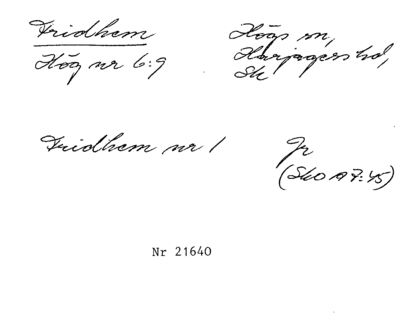 Fridhem
Hög nr 6:9
Högs sn,
Harjagers hd,
Sk
Fridhem nr 1
Jr
(SkO A 7:45)
Nr 21640